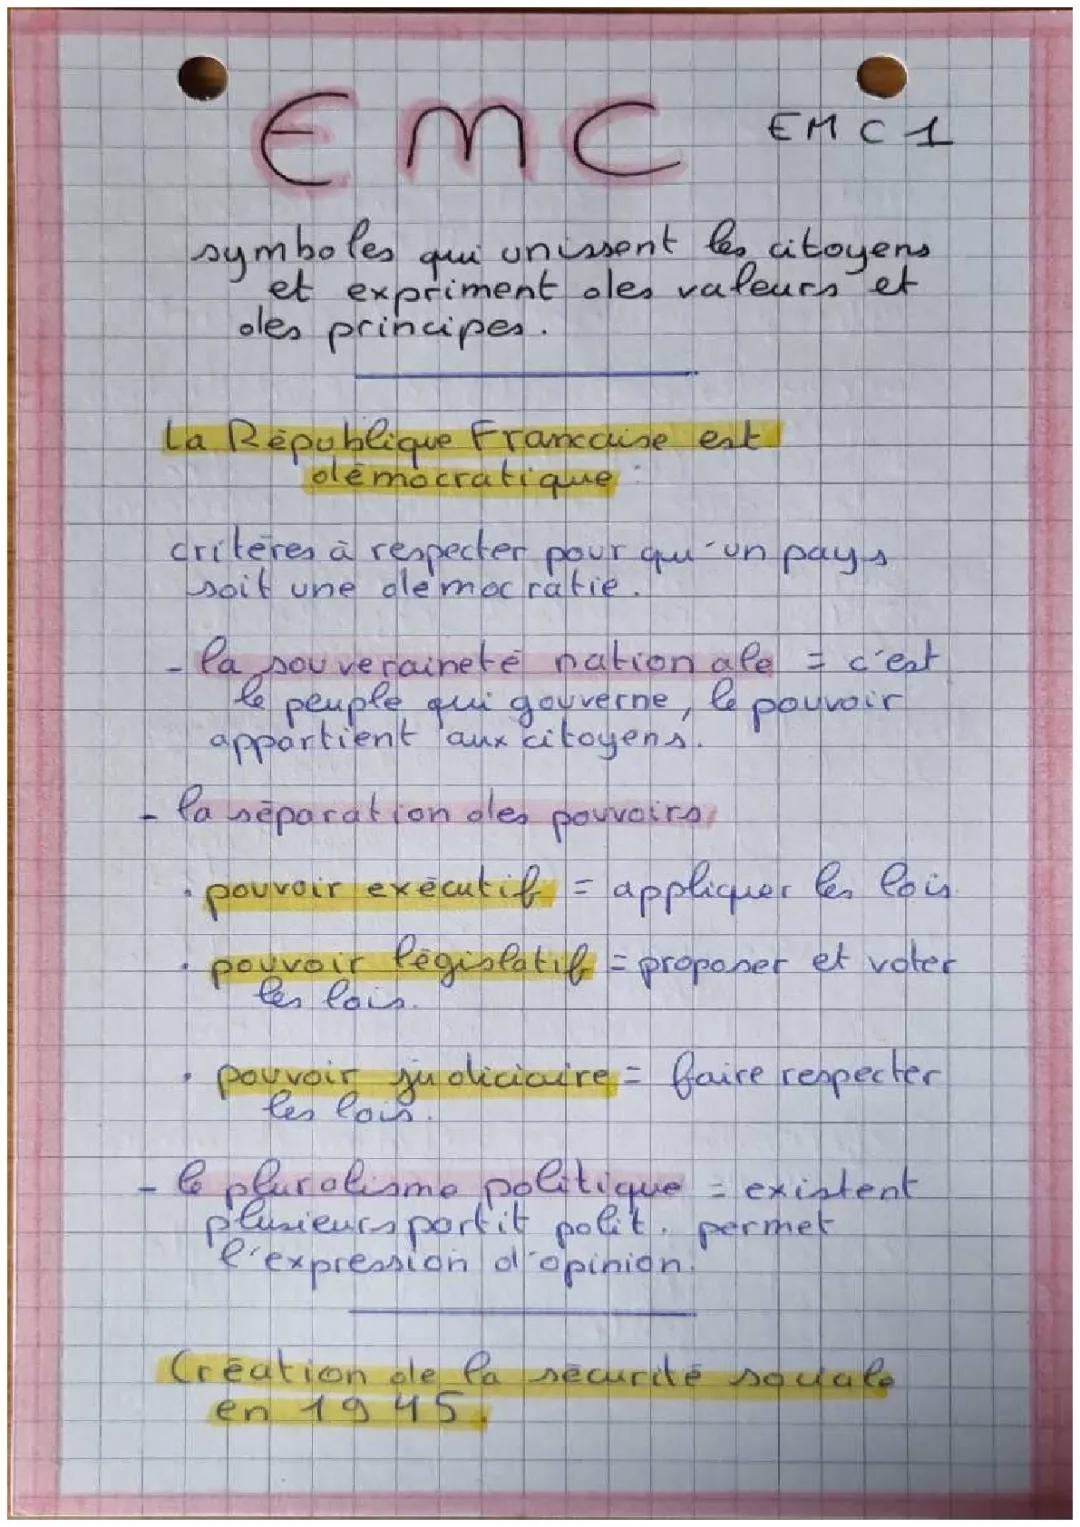 EMC
EMC 1
symboles qui unissent les citoyens
et expriment des valeurs et
des principes.
La République Francaise est
démocratique :
critères à respecter pour qu'un pays
soit une démocratie.
- la souveraineté nationale = c'est
le peuple qui gouverne, le pouvoir
appartient aux citoyens.
- la séparation des pouvoirs
• pouvoir exécutif = appliquer les lois
• pouvoir législatif = proposer et voter
les lois.
• pouvoir judiciaire = faire respecter
les lois.
- le pluralisme politique = existent
plusieurs partit polit. permet
l'expression d'opinion.
Création de la sécurité sociale
en 1945.